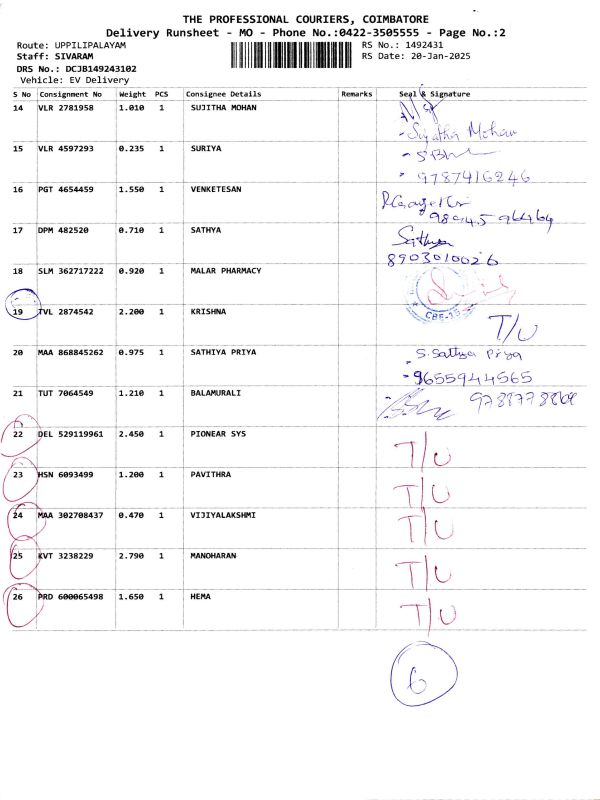 THE PROFESSIONAL COURIERS, COIMBATORE
Delivery Runsheet - MO - Phone No.:0422-3505555 - Page No.:2
Route: UPPILIPALAYAM RS No.: 1492431
Staff: SIVARAM RS Date: 20-Jan-2025
DRS No.: DCJB149243102
Vehicle: EV Delivery
S No Consignment No Weight PCS Consignee Details Remarks Seal & Signature
14 VLR 2781958 1.010 1 SUJITHA MOHAN
- Sujatha Mohan
15 VLR 4597293 0.235 1 SURIYA
- 9787416246
16 PGT 4654459 1.550 1 VENKETESAN
17 DPM 482520 0.710 1 SATHYA Sathya
8903010026
18 SLM 362717222 0.920 1 MALAR PHARMACY
CBE-15
19 TVL 2874542 2.200 1 KRISHNA T/U
20 MAA 868845262 0.975 1 SATHIYA PRIYA - S. Sathya Priya
- 9655944565
21 TUT 7064549 1.210 1 BALAMURALI
22 DEL 529119961 2.450 1 PIONEAR SYS T/U
23 HSN 6093499 1.200 1 PAVITHRA T/U
24 MAA 302708437 0.470 1 VIJIYALAKSHMI T/U
25 KVT 3238229 2.790 1 MANOHARAN T/U
26 PRD 600065498 1.650 1 HEMA T/U
6